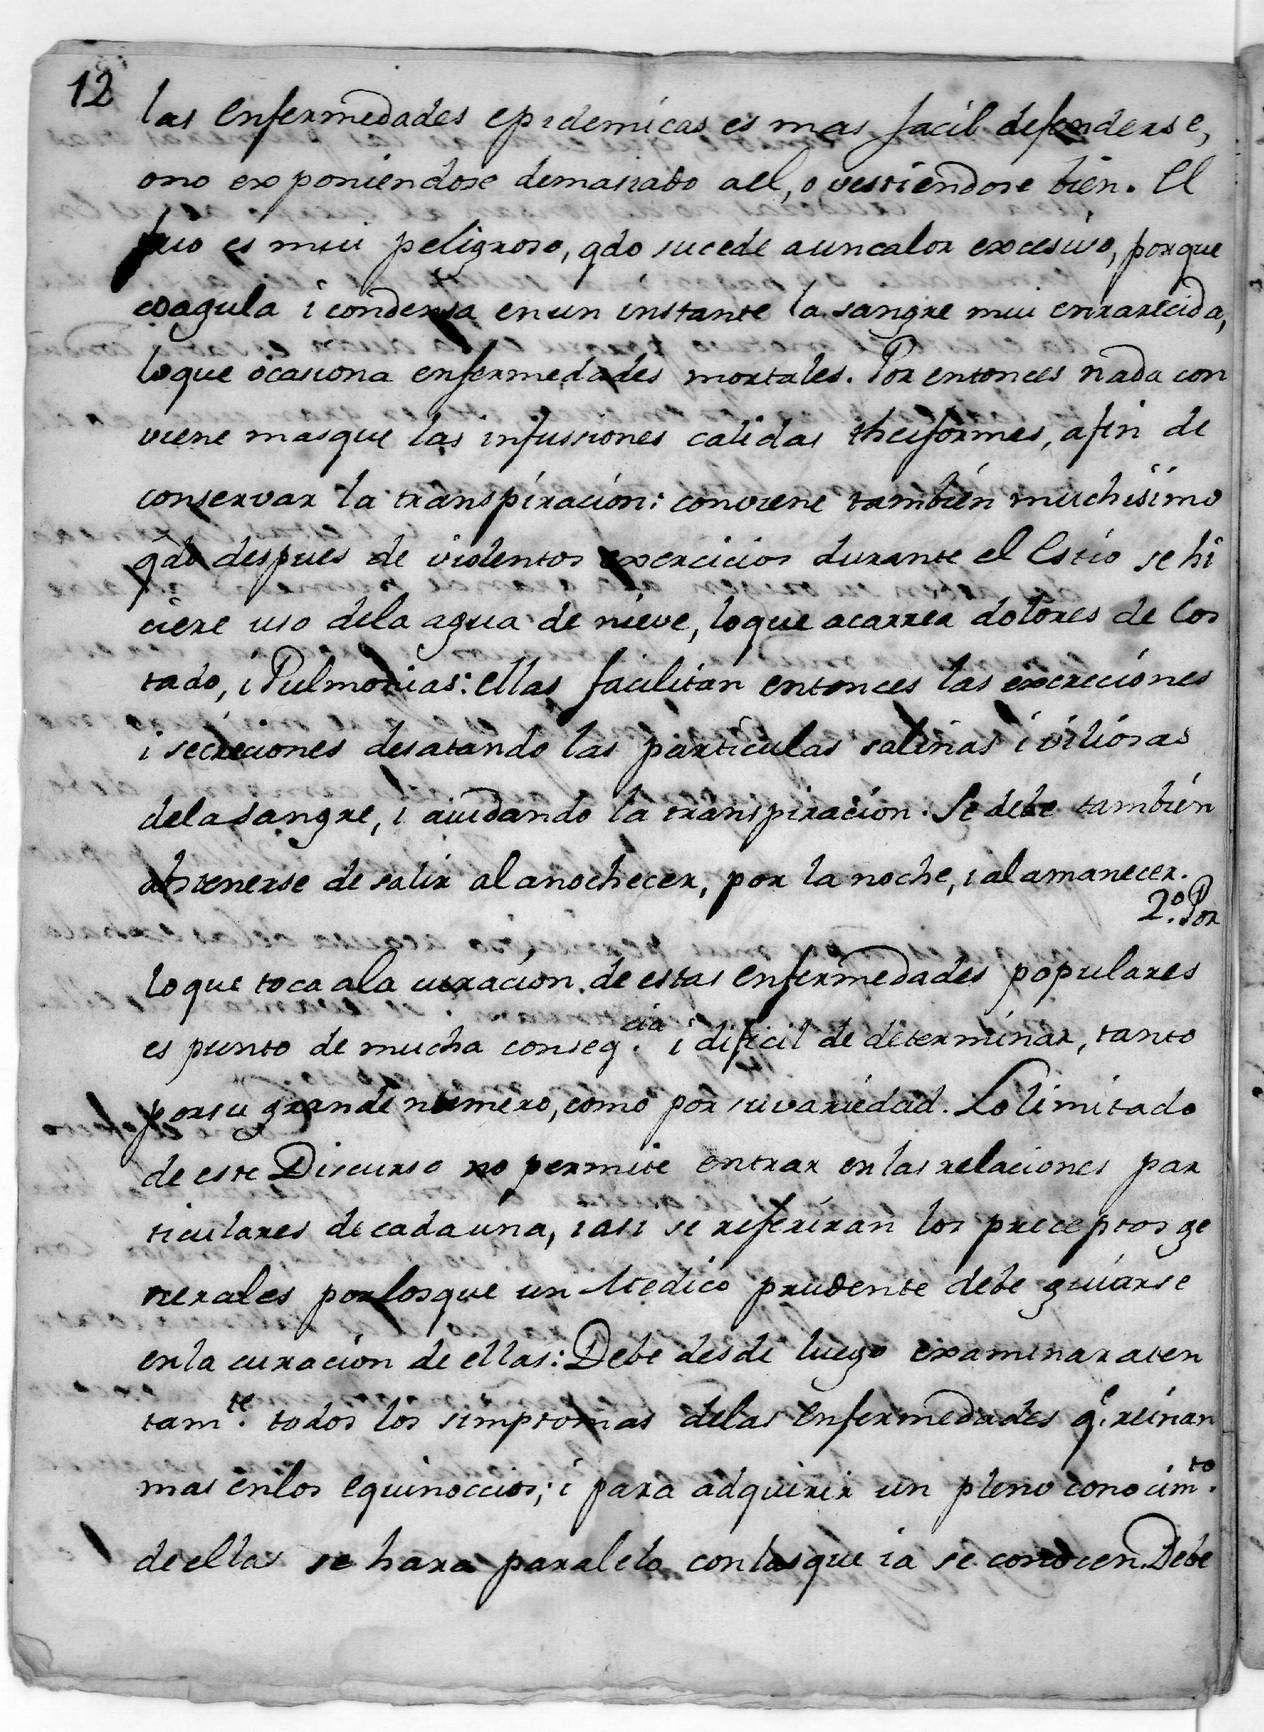 12
las enfermedades epidemicas es mas facil defenderse,
o no exponiendose demasiado a el, o vestiendose bien. El
frio es mui peligroso, qdo sucede a un calor excesivo, porque
coagula i condensa en un instante la sangre mui enrarecida,
lo que ocasiona enfermedades mortales. Por entonces nada con
viene mas que las infusiones calidas theiformes, a fin de
conservar la transpiracion: conviene tambien muchisimo
qdo despues de violentos exercicios durante el Estio se hi
ciere uso de la agua de nieve, lo que acarrea dolores de cos
tado, i Pulmonias: ellas facilitan entonces las excreciones
i secreciones desatando las particulas salinas i viliosas
de la sangre, i aiudando la transpiracion. Se debe tambien
abstenerse de salir al anochecer, por la noche, i al amanecer.
2.º Por
lo que toca a la curacion de estas enfermedades populares
es punto de mucha conseq.cia i dificil de determinar, tanto
por su grande numero, como por su variedad. Lo limitado
de este Discurso no permite entrar en las relaciones par
ticulares de cada una, i asi se referiran los preceptos ge
nerales por los que un Medico prudente debe guiarse
en la curacion de ellas: Debe desde luego examinar aten
tam.te todos los simptomas de las enfermedades q.e reinan
mas en los equinoccios; i para adquirir un pleno conocim.to
de ellas se hara paralelo con las que ia se conocen. Debe